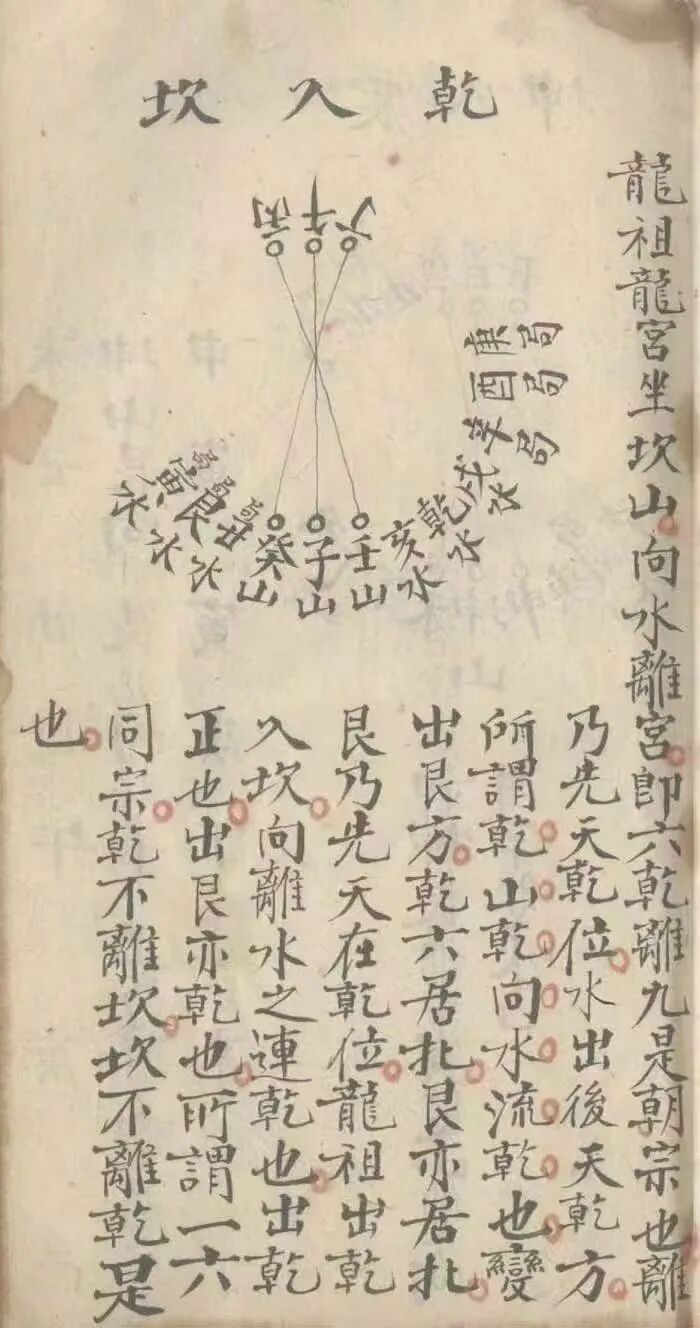 乾入坎
丁
午
丙
庚局
酉局
辛局
戌水
乾水
亥水
壬山
子山
癸山
丑局水
艮局水
寅局水
龍祖龍宮坐坎山向水離宮即六乾離九是朝宗也離
乃先天乾位水出後天乾方
所謂乾山乾向水流乾也變
出艮方乾六居北艮亦居北
艮乃先天在乾位龍祖出乾
入坎向離水之連乾也出乾
正也出艮亦乾也所謂一六
同宗乾不離坎坎不離乾是
也